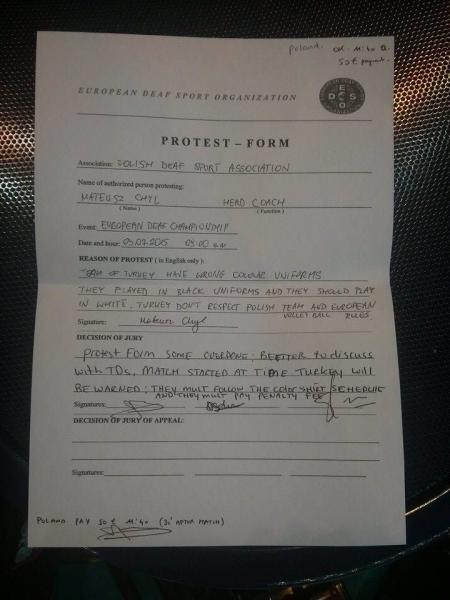 Poland. OK. 11:40
50 € payment.
EUROPEAN DEAF SPORT ORGANIZATION
EDSO
PROTEST – FORM
Association: POLISH DEAF SPORT ASSOCIATION
Name of authorized person protesting:
MATEUSZ CHYL HEAD COACH
(Name) (Function)
Event: EUROPEAN DEAF CHAMPIONSHIP
Date and hour: 05.07.2015 09:00 a.m
REASON OF PROTEST ( in English only ):
TEAM OF TURKEY HAVE WRONG COLOUR UNIFORMS
THEY PLAYED IN BLACK UNIFORMS AND THEY SHOULD PLAY
IN WHITE. TURKEY DON'T RESPECT POLISH TEAM AND EUROPEAN
VOLLEYBALL RULES
Signature: Mateusz Chyl
DECISION OF JURY
Protest Form some overdone; BETTER to discuss
with TDs. MATCH STARTED AT TIME TURKEY will
BE WARNED; THEY MULT FOLLOW THE COLOR SHIRT SCHEDULE
AND THEY MULT PAY PENALTY FEE
Signatures:
DECISION OF JURY OF APPEAL:
Signatures:
POLAND PAY 50 € 11:40 (30' AFTER MATCH)